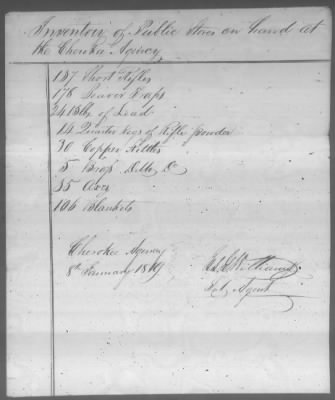 Inventory of Public Stores on hand at
the Cherokee Agency
187 Short Rifles
178 Beaver Traps
2415 lbs of Lead
14 Quarter kegs of Rifle powder
30 Copper Kettles
5 Brass Kettles
35 Axes
106 Blankets
Cherokee Agency
8th January 1819
Agent